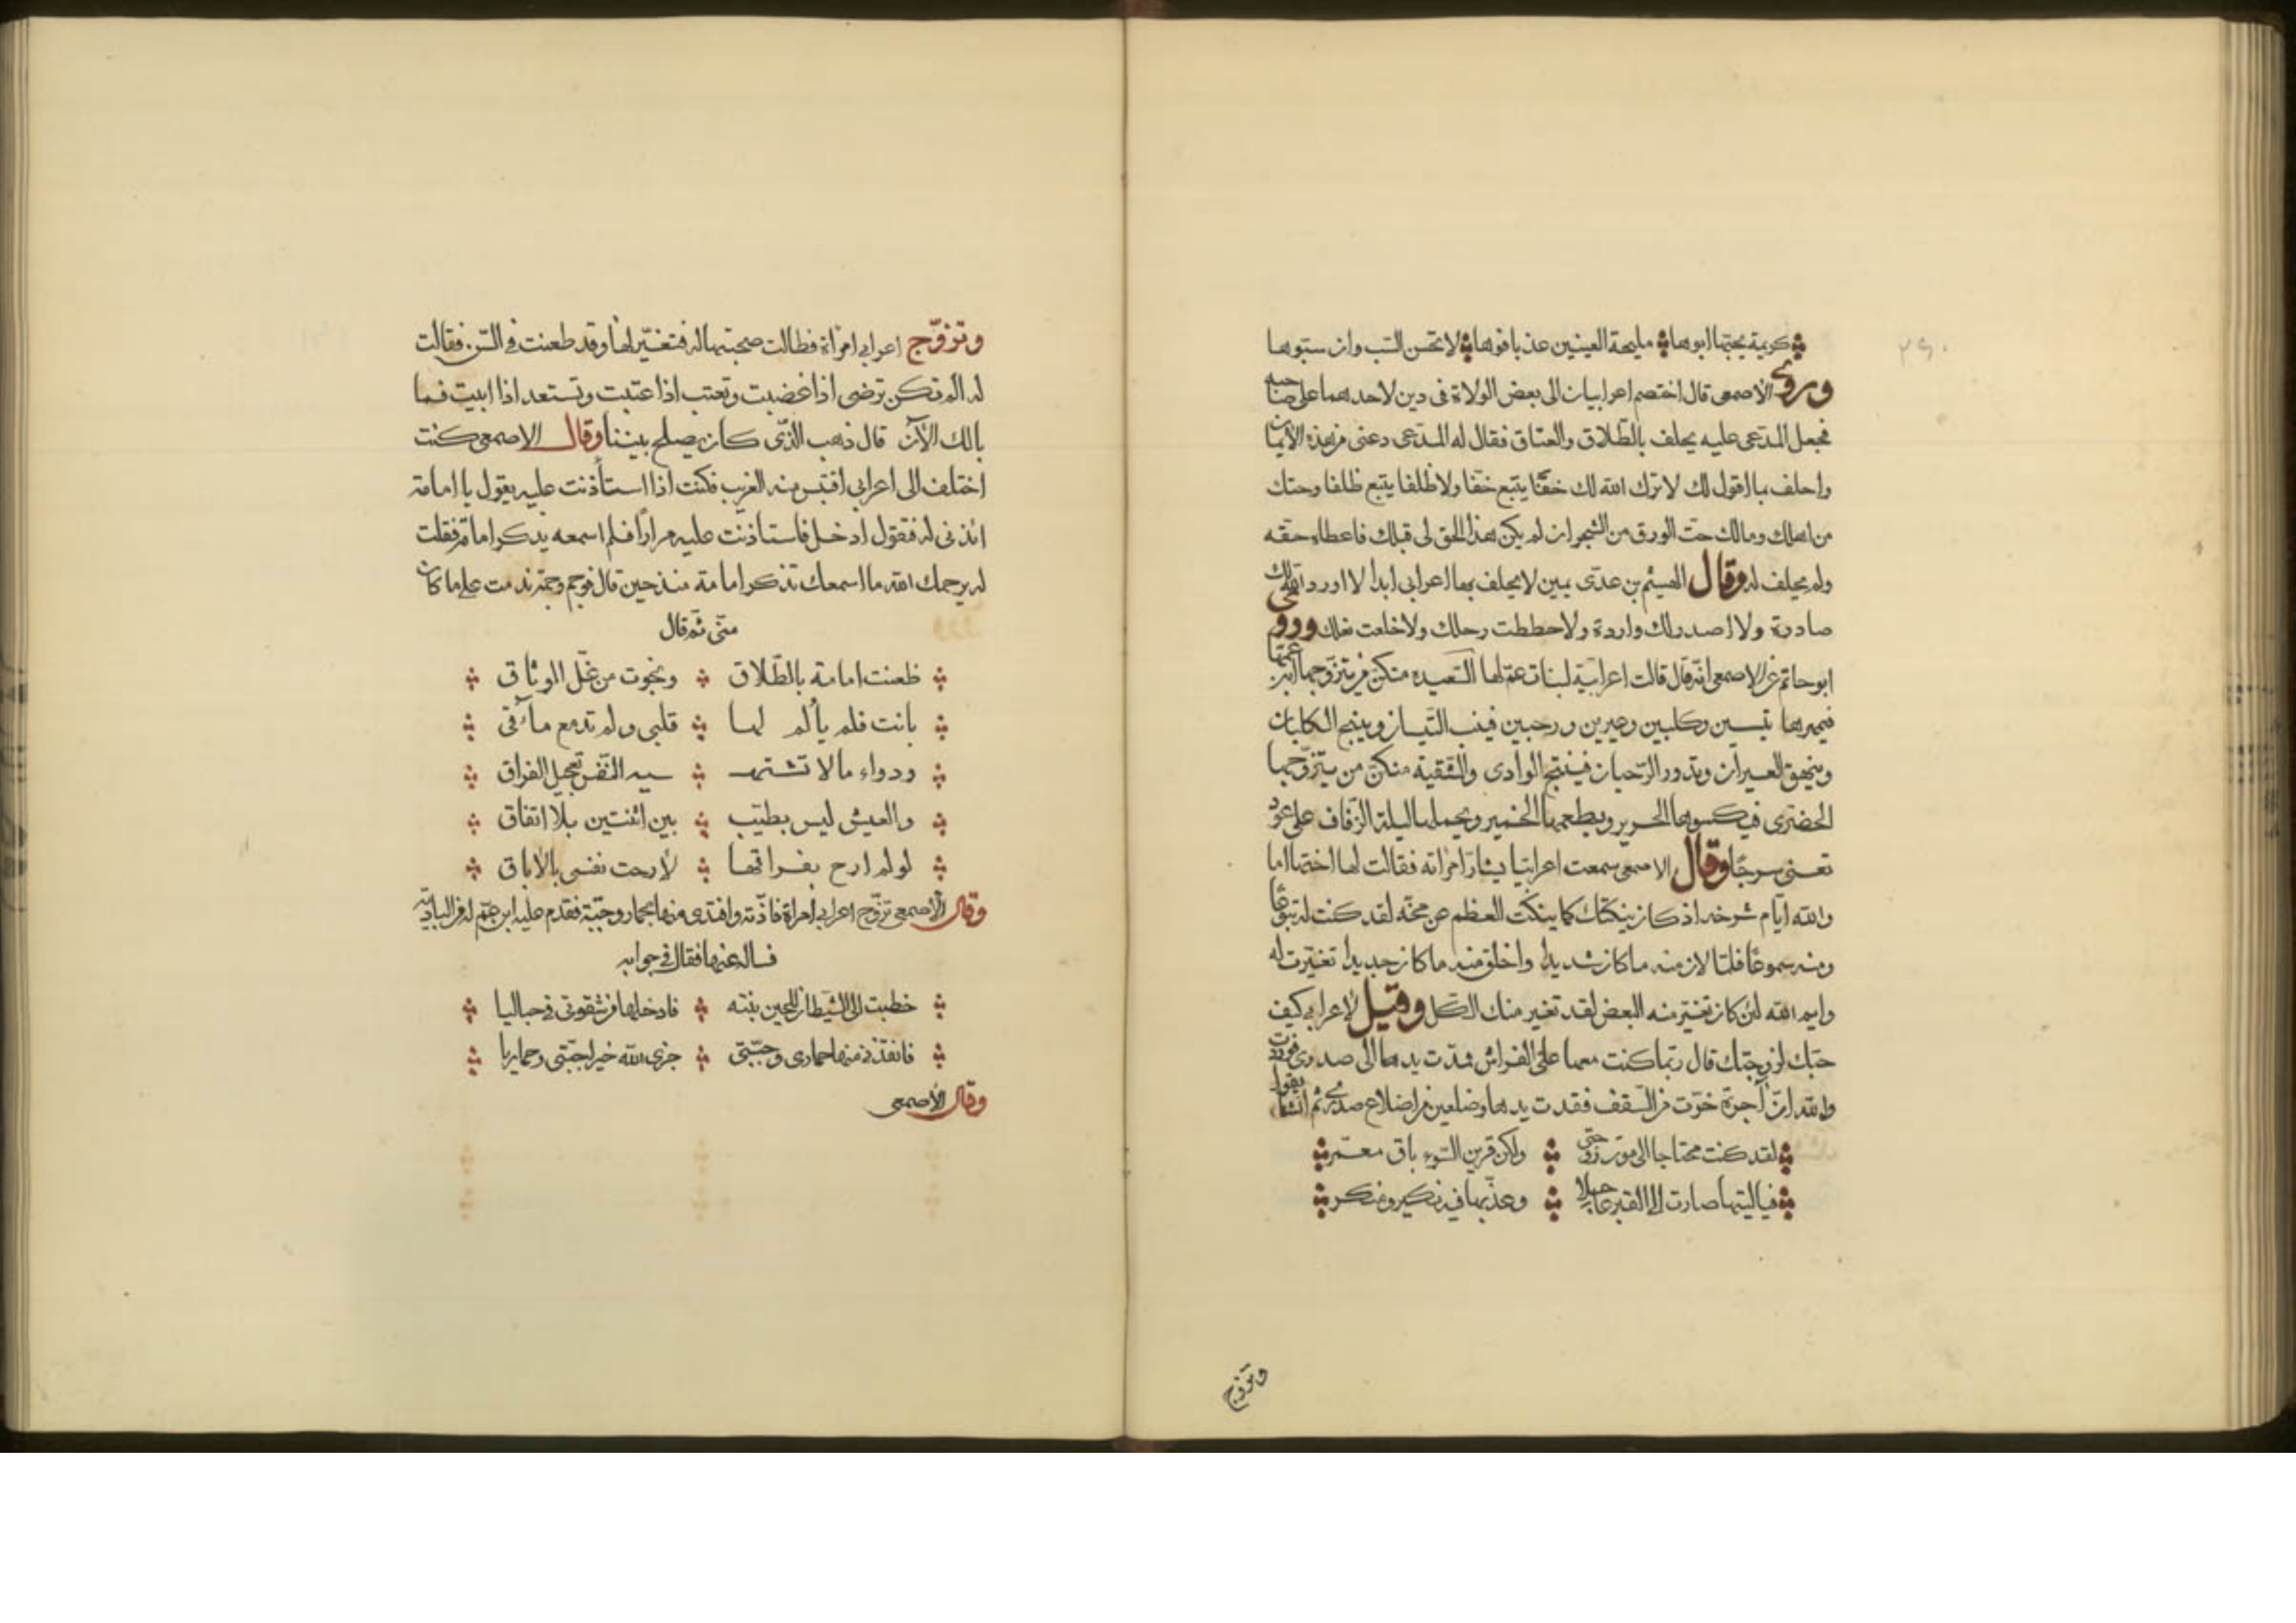 كريمة يحبها ابوها مليحة العينين عذبا فوها لا تحسن السب وان سبوها
وروى الاصمعى قال اختصم اعرابيان الى بعض الولاة فى دين لاحدهما على صاحبه
فجعل المدعى عليه يحلف بالطلاق والعتاق فقال له المدعى دعنى من هذه الأيمان
واحلف بما اقول لك لا ترك الله لك خفا يتبع خفا ولا ظلفا يتبع ظلفا وحتك
من اهلك ومالك حت الورق من الشجر ان لم يكن هذا الحق لى قبلك فاعطاه حقه
ولم يحلف له وقال الهيثم بن عدى يمين لا يحلف بها اعرابى ابدا لا اورد الله لك
صادرة ولا اصدر لك واردة ولا حططت رحلك ولا خلعت نعلك وروى
ابو حاتم عن الاصمعى انه قال قالت اعرابية لبنات عم لها السعيدة منكن من يتزوجها ابن عمها
فيمهرها بتيسين وكلبين وعيرين ورحيين فينب التيسان وينبح الكلبان
وينهق العيران وتدور الرحيان فينفتح الوادى والشقية منكن من يتزوجها
الحضرى فيكسوها الحرير ويطعمها الخمير ويحملها ليلة الزفاف على عود
تعنى سرجا وقال الاصمعى سمعت اعرابيا يشار امراته فقالت لها اختها اما
والله ايام شرخه اذ كان ينكتك كما ينكت العظم عن مخه لقد كنت له تبوعا
ومنه سموعا فلما لان منه ما كان شديدا واخلق منه ما كان جديدا تغيرت له
وايم الله لئن كان تغير منه البعض لقد تغير منك الكل وقيل لاعرابى كيف
حبك لزوجتك قال ربما كنت معها على الفراش فمدت يدها الى صدرى فوددت
والله ان آجرة خرت من السقف فقدت يدها وضلعين من اضلاع صدرى ثم انشا يقول
لقد كنت محتاجا الى موت زوجتى ولكن قرين السوء باق معمر
فيا ليتها صارت الى القبر عاجلا وعذبها فيه نكير ومنكر
وتزوج
وتزوج اعرابى امراة فطالت صحبتها له فتغير لها وقد طعنت فى السن فقالت
له الم تكن ترضى اذا غضبت وتعتب اذا عتبت وتستعد اذا ابيت فما
بالك الآن قال ذهب الذى كان يصلح بيننا وقال الاصمعى كنت
اختلف الى اعرابى اقتبس منه الغريب فكنت اذا استأذنت عليه يقول يا امامة
ائذنى له فتقول ادخل فاستاذنت عليه مرارا فلم اسمعه يذكر امامة فقلت
له يرحمك الله ما اسمعك تذكر امامة منذ حين قال فوجم وجمة ندمت على ما كان
منى ثم قال
ظعنت امامة بالطلاق ونجوت من غل الوثاق
بانت فلم يألم لها قلبى ولم تدمع مآقى
ودواء ما لا تشتهـ ـيه النفس تعجيل الفراق
والعيش ليس بطيب بين اثنتين بلا اتفاق
لو لم ارح بفراقها لأرحت نفسى بالاباق
وقال الأصمعى تزوج اعرابى امراة فاذته وافتدى منها بحمار وجبة فقدم عليه ابن عم له من البادية
فساله عنها فقال فى جوابه
خطبت الى الشيطان للحين بنته فادخلها من شقوتى فى حباليا
فانقذنى منها حمارى وجبتى جزى الله خيرا جبتى وحماريا
وقال الأصمعى